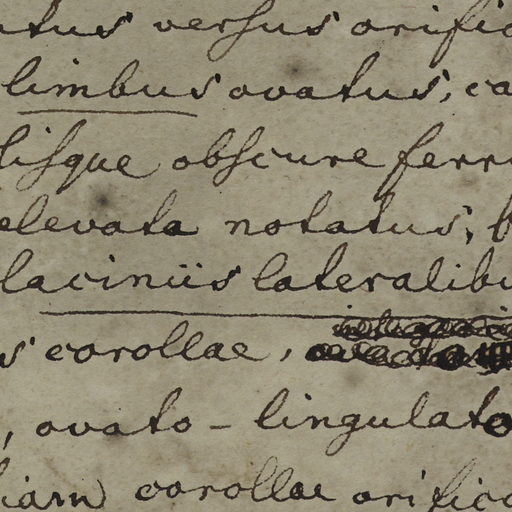 atus versus orific
limbus ovatus, ca
lisque obscure ferru
elevata notatus; b
laciniis lateralibu
s corollae,
, ovato – lingulato
iam corollae orific